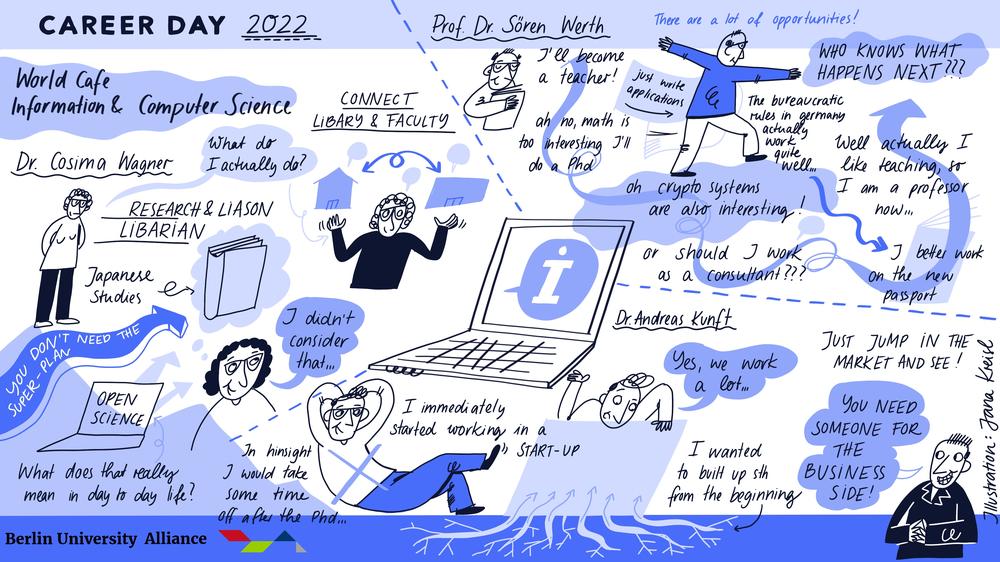 CAREER DAY 2022
World Cafe
Information & Computer Science
Dr. Cosima Wagner
What do
I actually do?
CONNECT
LIBARY & FACULTY
RESEARCH & LIASON
LIBARIAN
Japanese
Studies
YOU DON'T NEED THE
SUPER-PLAN
I didn't
consider
that...
OPEN
SCIENCE
What does that really
mean in day to day life?
Prof. Dr. Sören Werth
I'll become
a teacher!
ah no, math is
too interesting I'll
do a Phd
There are a lot of opportunities!
just write
applications
The bureaucratic
rules in germany
actually
work
quite
well...
WHO KNOWS WHAT
HAPPENS NEXT???
oh crypto systems
are also interesting!
or should I work
as a consultant???
I better work
on the new
passport
Well actually I
like teaching, so
I am a professor
now...
i
Dr. Andreas Kunft
Yes, we work
a lot...
I immediately
started working in a
START-UP
In hinsight
I would take
some time
off after the Phd...
I wanted
to built up sth
from the beginning
JUST JUMP IN THE
MARKET AND SEE!
YOU NEED
SOMEONE FOR
THE
BUSINESS
SIDE!
Illustration: Jana Kreisl
Berlin University Alliance